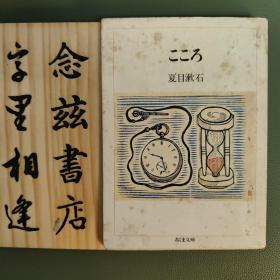 念兹書店
字里相逢
こころ
夏目漱石
ちくま文庫